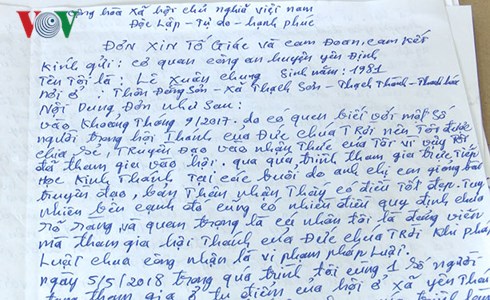 VOV
Cộng hòa xã hội chủ nghĩa việt nam
Độc Lập - Tự do - hạnh phúc
ĐƠN XIN TỐ GIÁC và cam Đoan, cam kết
Kính gửi: cơ quan công an huyện yên Định
Tên Tôi là: Lê Xuân chung Sinh năm: 1981
nơi ở: Thôn Đông Sơn - xã Thạch Sơn - Thạch Thành - Thanh hóa
Nội Dung Đơn như Sau:
vào Khoảng Tháng 9/2017. do có quen biết với một số
người trong hội Thánh của Đức chúa TRời nên Tôi được
chia, Sẻ, TRuyền Đạo vào nhận Thức của Tôi vì vậy Tôi
đã tham gia vào hội. qua quá trình tham gia trực Tiếp
Học Kinh Thánh Tại các buổi do anh chị em giảng bài
truyền đạo, bản Thân nhận Thấy có điều Tốt đẹp. Tuy
nhiên bên cạnh đó cũng có nhiều điều quy định chưa
rõ ràng, và quan trọng là cá nhân tôi là đảng viên
mà tham gia hội Thánh của Đức chúa TRời Khi pháp
Luật chưa công nhận là vi phạm pháp Luật.
ngày 5/5/2018 trong quá trình tôi cùng 1 số người
tham gia ở tụ điểm của hội ở xã yên Thái